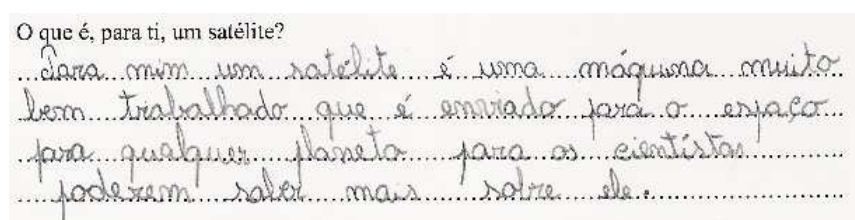 O que é, para ti, um satélite?
Para mim um satélite é uma máquina muito
bem trabalhado que é enviado para o espaço
para qualquer planeta para os cientistas
poderem saber mais sobre ele.